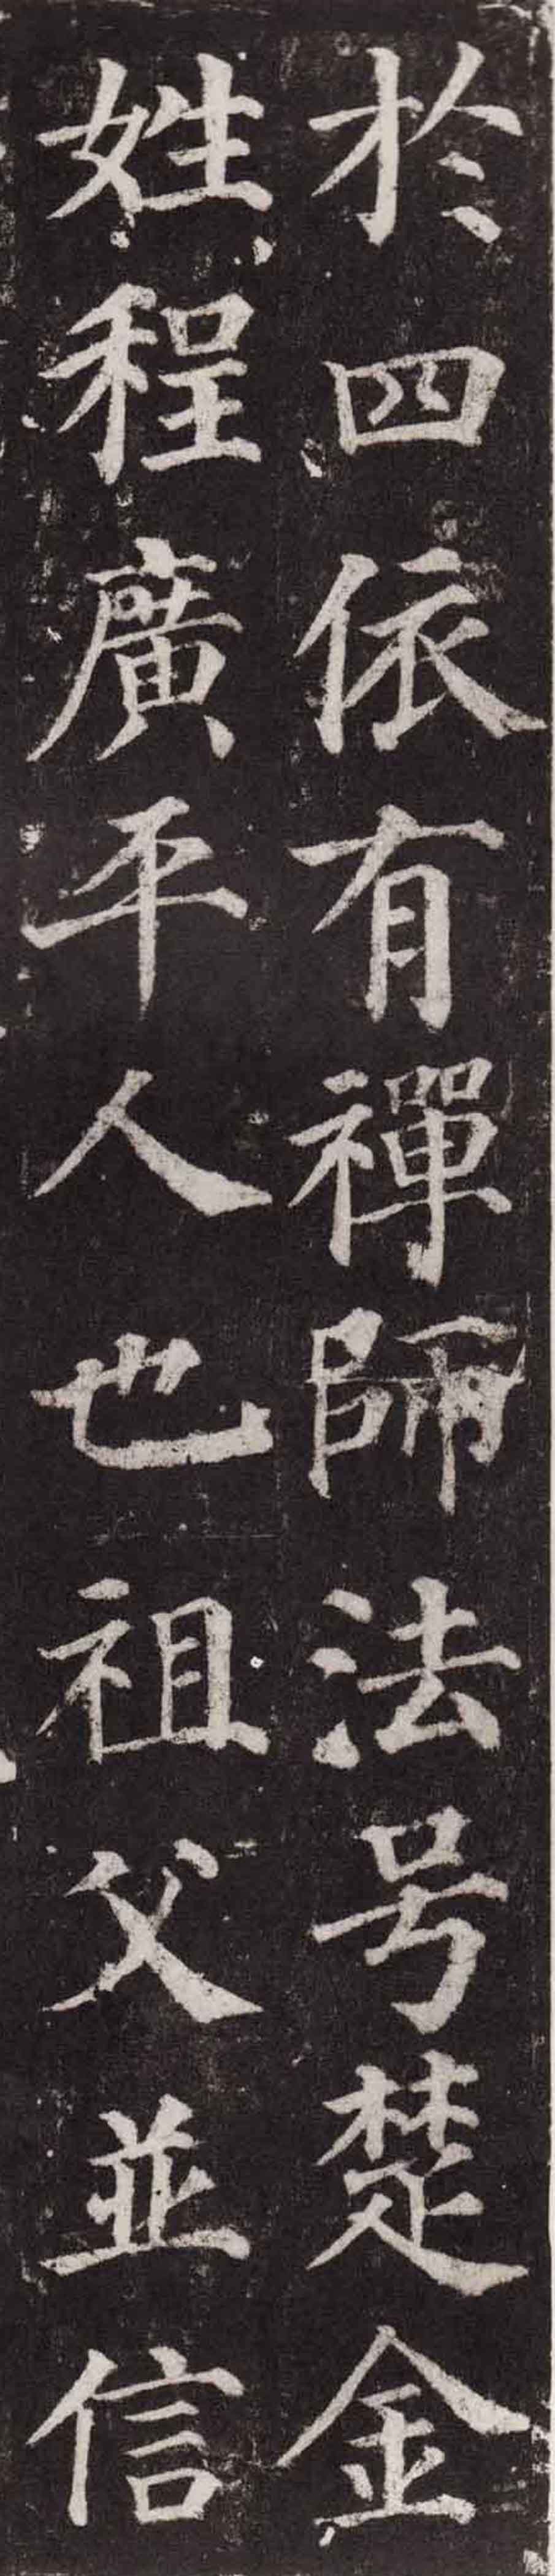 於四依有禪師法号楚金
姓程廣平人也祖父並信